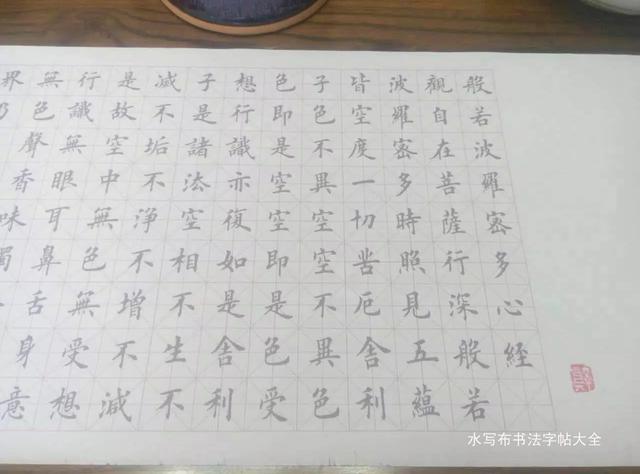 般若波羅密多心經
觀自在菩薩行深般若
波羅密多時照見五蘊
皆空度一切苦厄舍利
子色不異空空不異色
色即是空空即是色受
想行識亦復如是舍利
子是諸法空相不生不
滅不垢不淨不增不減
是故空中無色無受想
行識無眼耳鼻舌身意
無色聲香味
界
水写布书法字帖大全